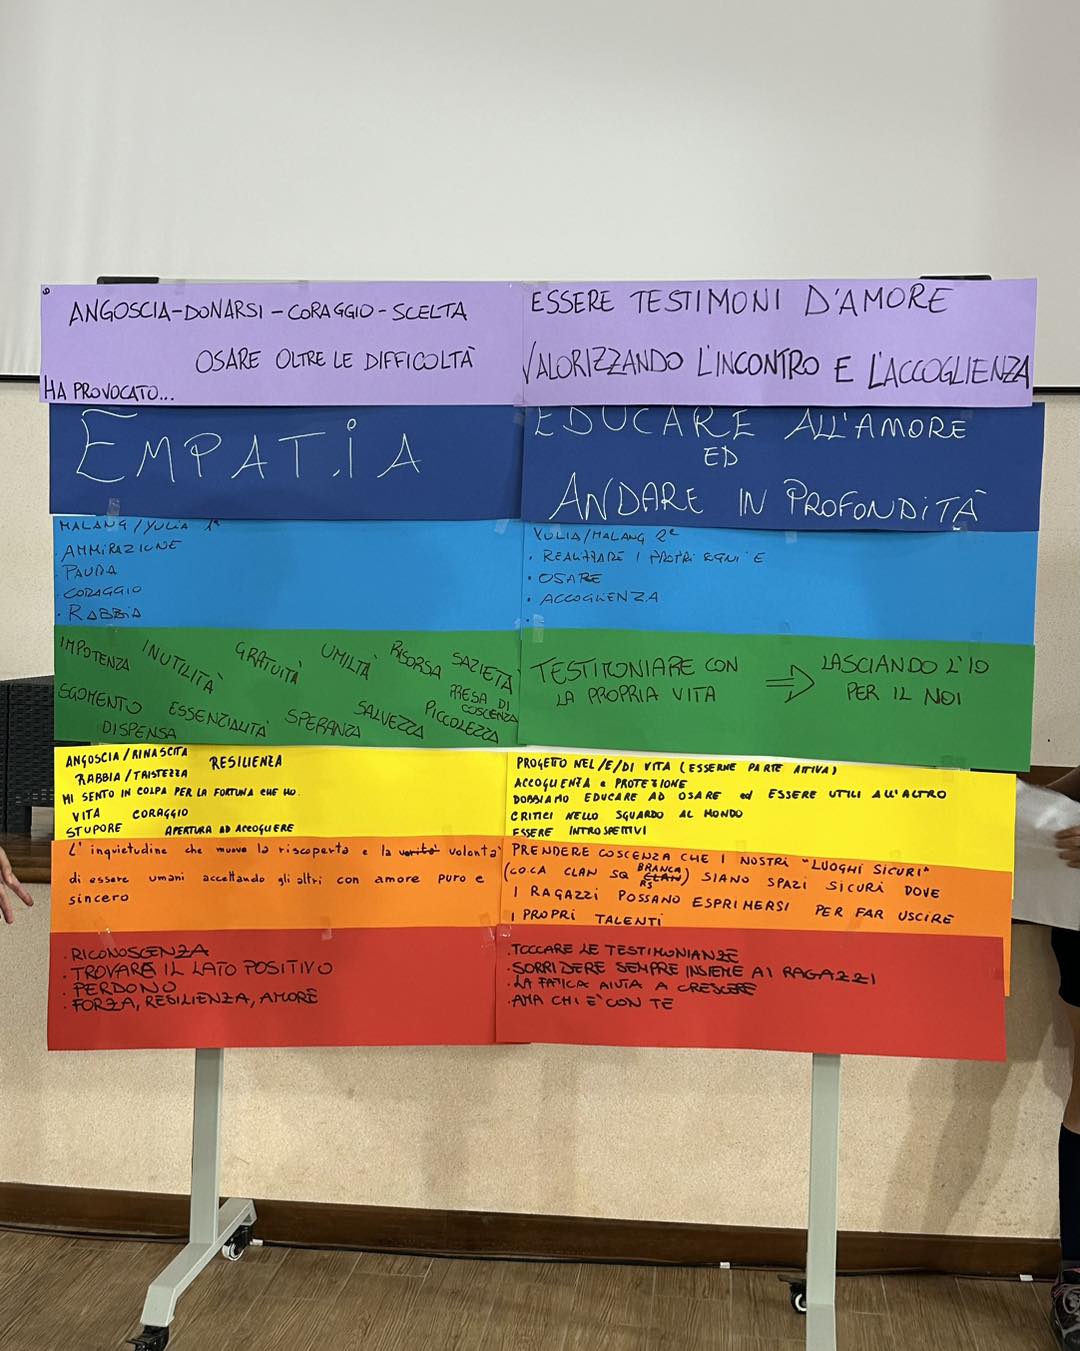 ANGOSCIA-DONARSI-CORAGGIO-SCELTA
OSARE OLTRE LE DIFFICOLTÀ
HA PROVOCATO...
ESSERE TESTIMONI D'AMORE
VALORIZZANDO L'INCONTRO E L'ACCOGLIENZA
EMPATIA
EDUCARE ALL'AMORE
ED
ANDARE IN PROFONDITÀ
MALANG/YULIA 1ª
· AMMIRAZIONE
· PAURA
· CORAGGIO
· RABBIA
YULIA/MALANG 2ª
· REALIZZARE I PROPRI SOGNI E
· OSARE
· ACCOGLIENZA
·
IMPOTENZA INUTILITÀ GRATUITÀ UMILTÀ RISORSA SAZIETÀ
SGOMENTO ESSENZIALITÀ SPERANZA SALVEZZA PICCOLEZZA PRESA DI COSCIENZA
DISPENSA
TESTIMONIARE CON
LA PROPRIA VITA
⇒
LASCIANDO L'IO
PER IL NOI
ANGOSCIA/RINASCITA RESILIENZA
RABBIA/TRISTEZZA
MI SENTO IN COLPA PER LA FORTUNA CHE HO.
VITA CORAGGIO
STUPORE APERTURA AD ACCOGLIERE
PROGETTO NEL/E/DI VITA (ESSERNE PARTE ATTIVA)
ACCOGLIENZA e PROTEZIONE
DOBBIAMO EDUCARE AD OSARE ed ESSERE UTILI ALL'ALTRO
CRITICI NELLO SGUARDO AL MONDO
ESSERE INTROSPETTIVI
L'inquietudine che muove la riscoperta e la verità volontà
di essere umani accettando gli altri con amore puro e
sincero
PRENDERE COSCENZA CHE I NOSTRI "LUOGHI SICURI"
(CO.CA CLAN SQ BRANCA CLAN RS) SIANO SPAZI SICURI DOVE
I RAGAZZI POSSANO ESPRIMERSI PER FAR USCIRE
I PROPRI TALENTI
· RICONOSCENZA
· TROVARE IL LATO POSITIVO
· PERDONO
· FORZA, RESILIENZA, AMORE
· TOCCARE LE TESTIMONIANZE
· SORRIDERE SEMPRE INSIEME AI RAGAZZI
· LA FATICA AIUTA A CRESCERE
· AMA CHI E' CON TE